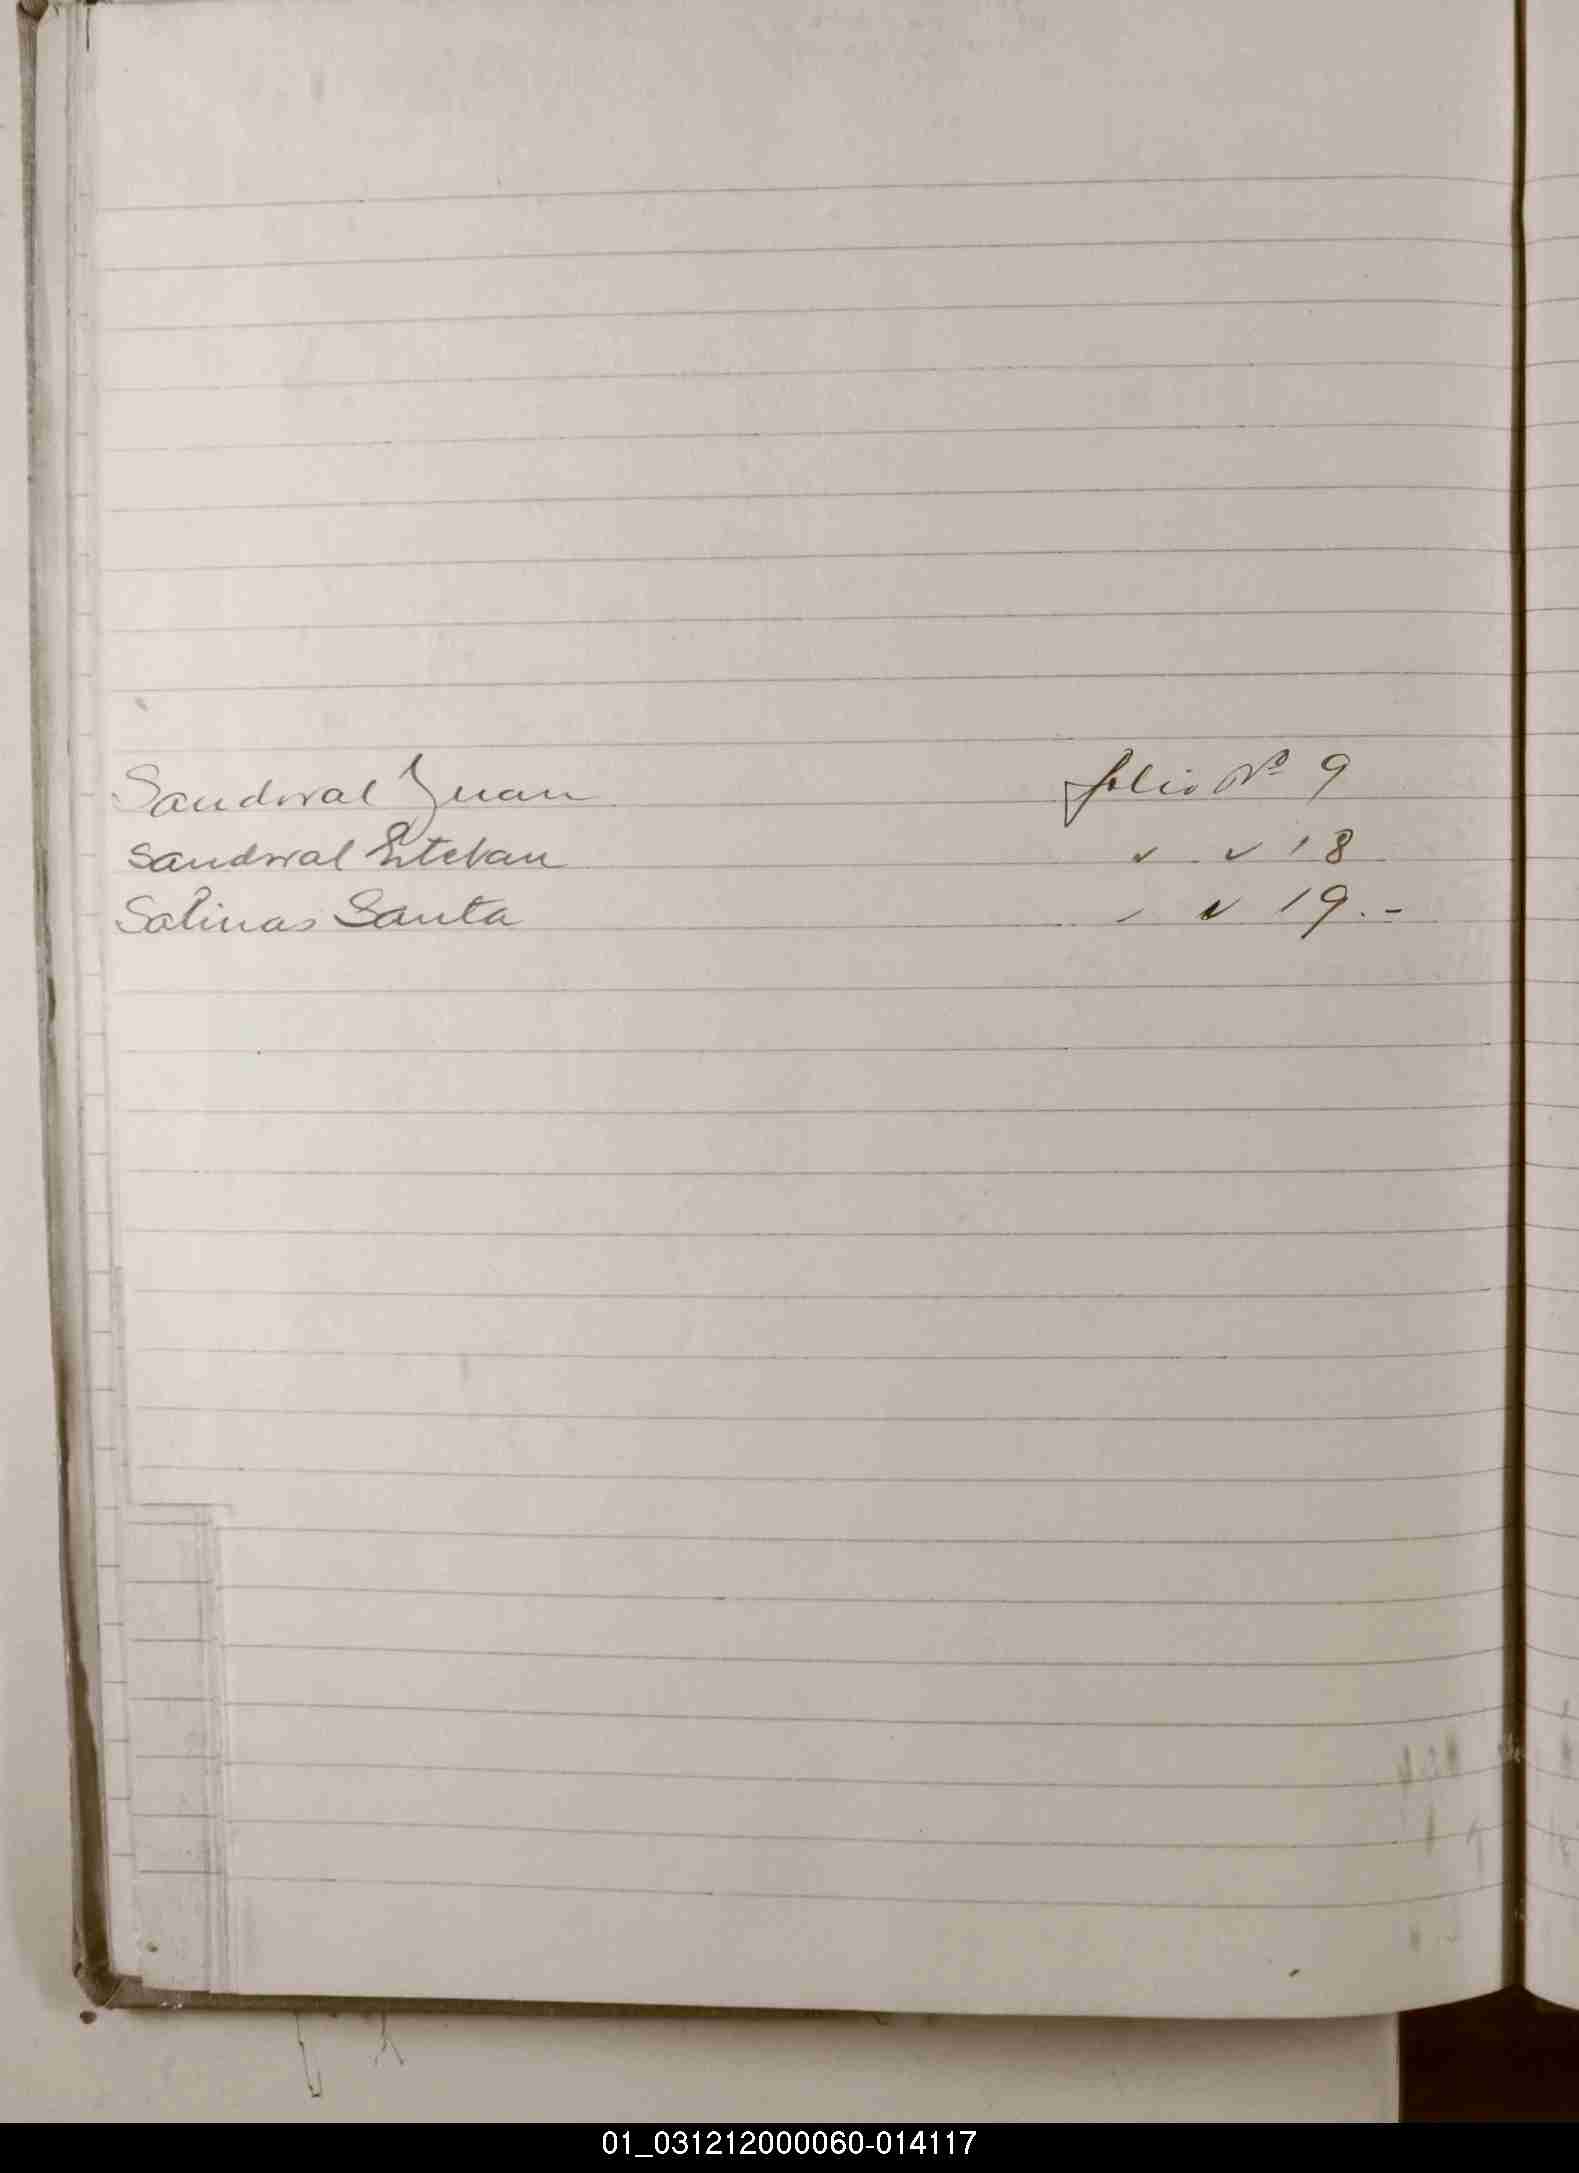 Sandoval Juan folio Nº 9
Sandoval Esteban " " 18
Salinas Santa " " 19.-
01_031212000060-014117